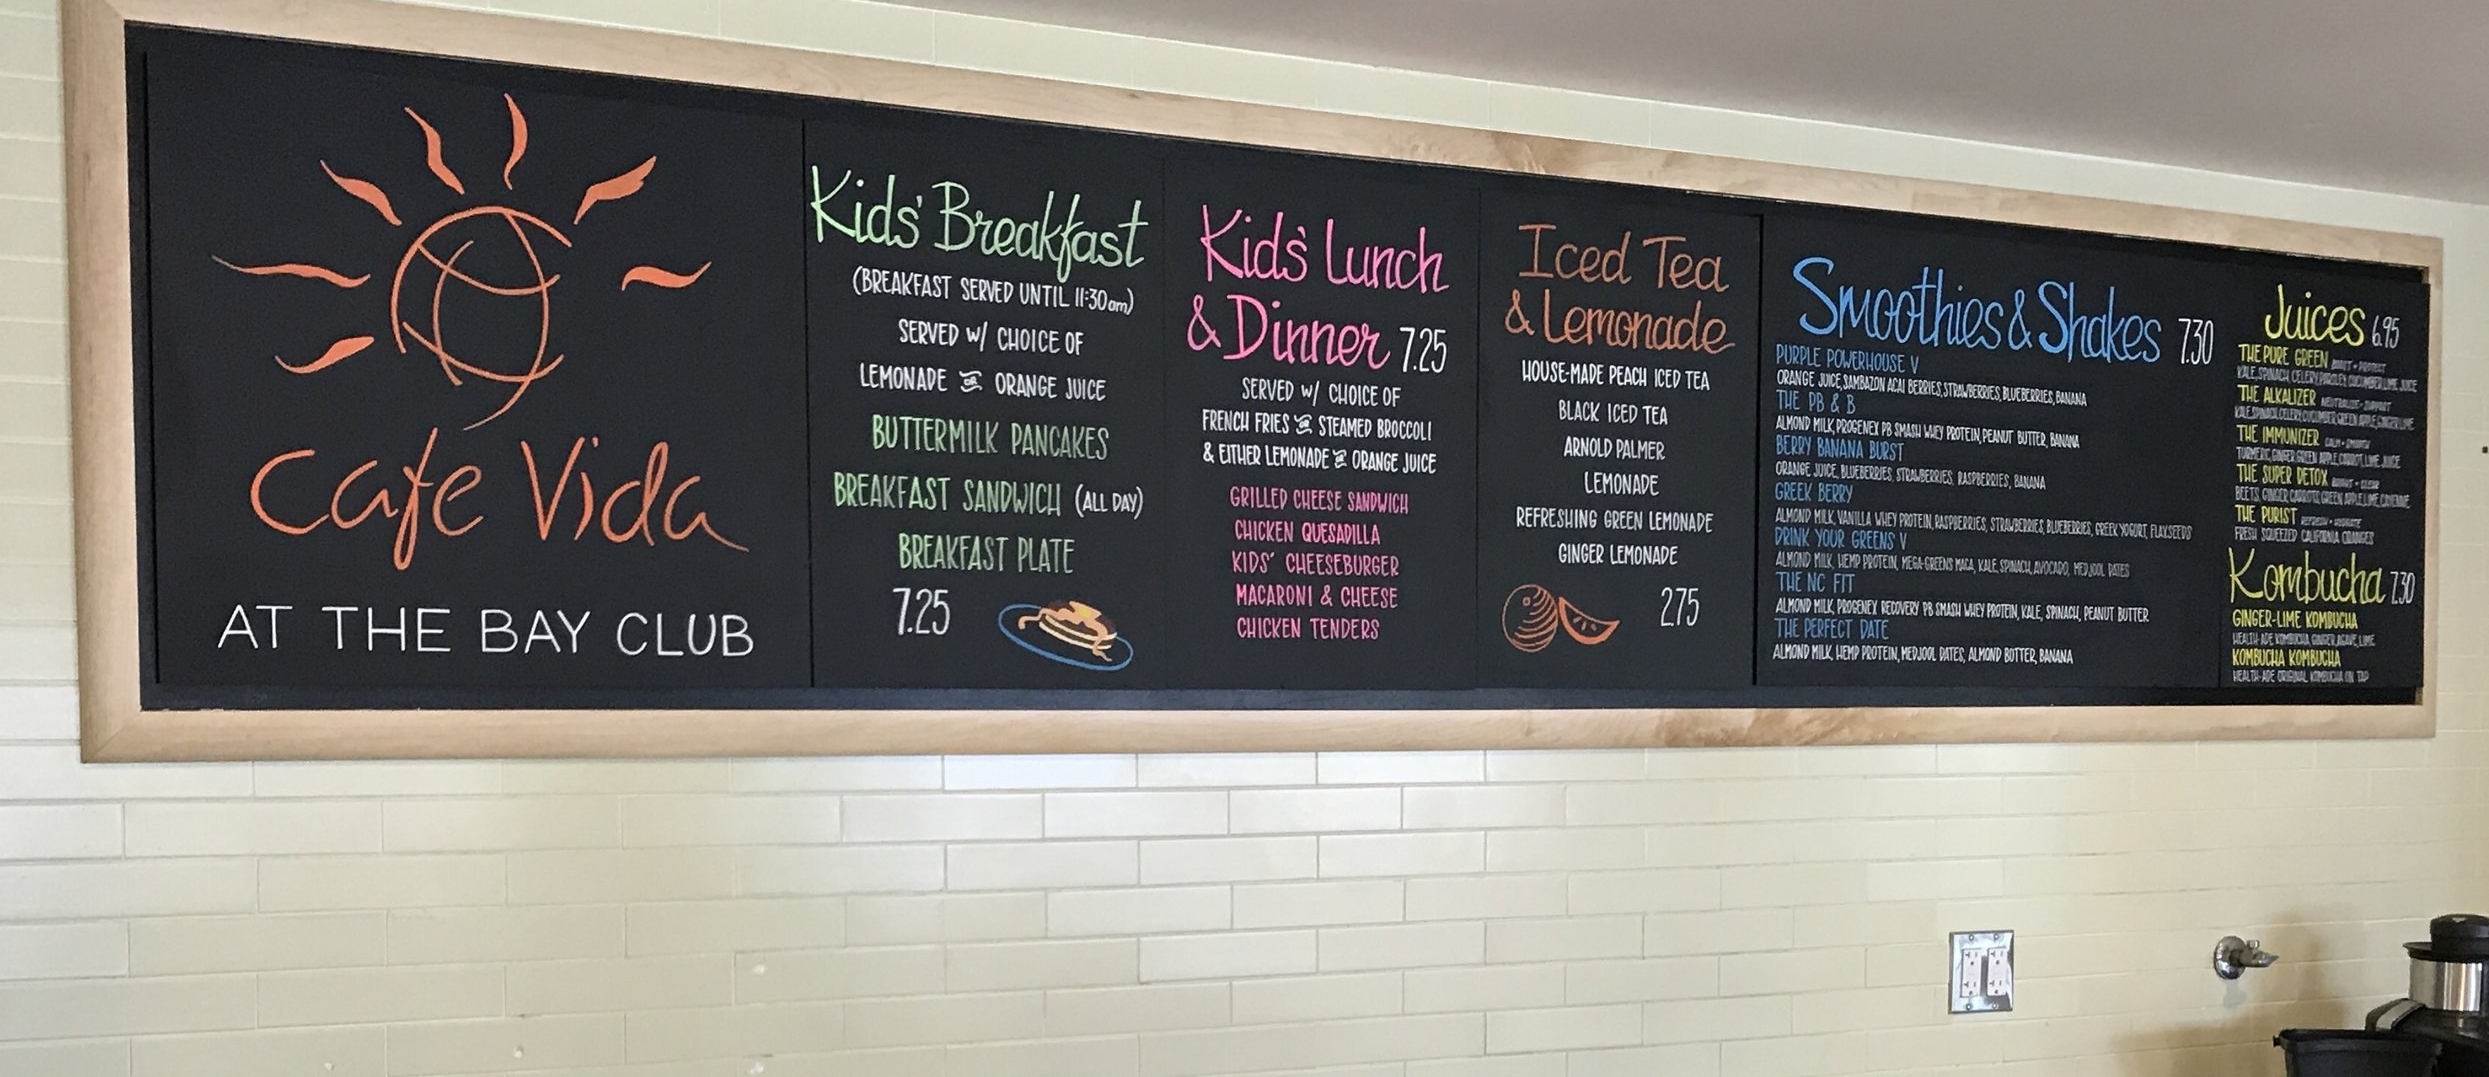 Cafe Vida
AT THE BAY CLUB
Kids' Breakfast
(BREAKFAST SERVED UNTIL 11:30am)
SERVED W/ CHOICE OF
LEMONADE OR ORANGE JUICE
BUTTERMILK PANCAKES
BREAKFAST SANDWICH (ALL DAY)
BREAKFAST PLATE
7.25
Kids' Lunch
& Dinner 7.25
SERVED W/ CHOICE OF
FRENCH FRIES OR STEAMED BROCCOLI
& EITHER LEMONADE OR ORANGE JUICE
GRILLED CHEESE SANDWICH
CHICKEN QUESADILLA
KIDS' CHEESEBURGER
MACARONI & CHEESE
CHICKEN TENDERS
Iced Tea
& Lemonade
HOUSE-MADE PEACH ICED TEA
BLACK ICED TEA
ARNOLD PALMER
LEMONADE
REFRESHING GREEN LEMONADE
GINGER LEMONADE
2.75
Smoothies & Shakes 7.30
PURPLE POWERHOUSE V
ORANGE JUICE, SAMBAZON ACAI BERRIES, STRAWBERRIES, BLUEBERRIES, BANANA
THE PB & B
ALMOND MILK, PROGENEX PB SMASH WHEY PROTEIN, PEANUT BUTTER, BANANA
BERRY BANANA BURST
ORANGE JUICE, BLUEBERRIES, STRAWBERRIES, RASPBERRIES, BANANA
GREEK BERRY
ALMOND MILK, VANILLA WHEY PROTEIN, RASPBERRIES, STRAWBERRIES, BLUEBERRIES, GREEK YOGURT, FLAXSEEDS
DRINK YOUR GREENS V
ALMOND MILK, HEMP PROTEIN, MEGA-GREENS MACA, KALE, SPINACH, AVOCADO, MEDJOOL DATES
THE NC FIT
ALMOND MILK, PROGENEX RECOVERY PB SMASH WHEY PROTEIN, KALE, SPINACH, PEANUT BUTTER
THE PERFECT DATE
ALMOND MILK, HEMP PROTEIN, MEDJOOL DATES, ALMOND BUTTER, BANANA
Juices 6.95
THE PURE GREEN
KALE, SPINACH, CELERY, PARSLEY, CUCUMBER, LIME JUICE
THE ALKALIZER NEUTRALIZE • SUPPORT
KALE, SPINACH, CELERY, CUCUMBER, GREEN APPLE, GINGER, LIME
THE IMMUNIZER
TURMERIC, GINGER, GREEN APPLE, CARROT, LIME JUICE
THE SUPER DETOX
BEETS, GINGER, CARROTS, GREEN APPLE, LIME, CAYENNE
THE PURIST REFRESH • HYDRATE
FRESH SQUEEZED CALIFORNIA ORANGES
Kombucha 7.30
GINGER-LIME KOMBUCHA
HEALTH-ADE KOMBUCHA, GINGER, AGAVE, LIME
KOMBUCHA KOMBUCHA
HEALTH-ADE ORIGINAL KOMBUCHA ON TAP